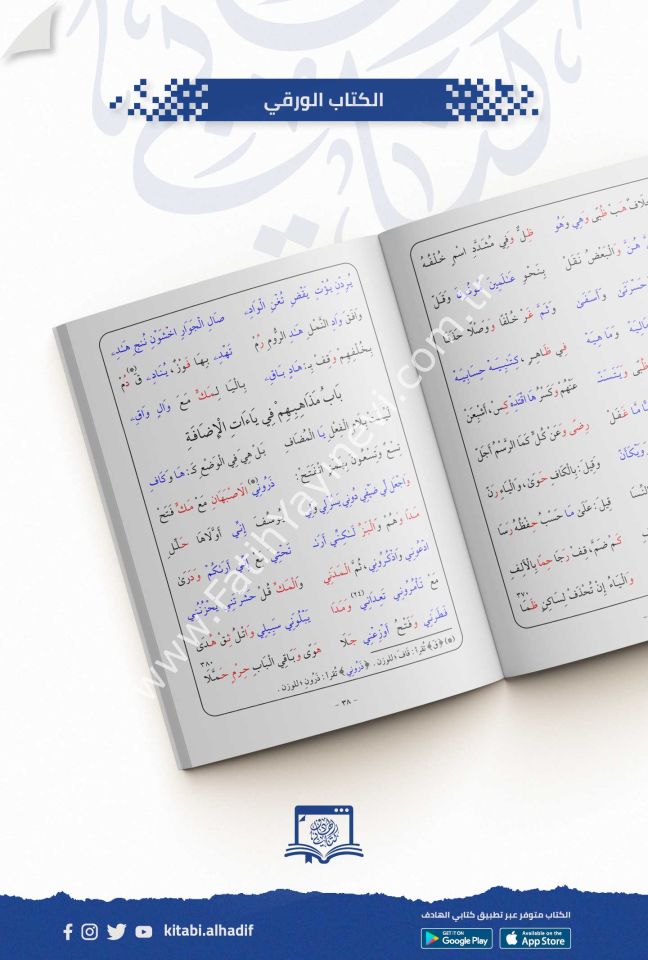 الكتاب الورقي
خُلْفُهُ
ظِلٌّ وَفِي مُشَدَّدِ اسْمٍ
هَبْ ظُبًى وَهِي وَهُو
بِنَحْوِ عَالَمِينَ
وَقَلْ
وَالْبَعْضُ نَقَلْ
وَثَمَّ غَرْ خُلْفًا وَوَصْلًا حَذَفَا
حَسْرَتَى وَأَسَفَى
فِي ظَاهِرٍ، كِتَابِيَهْ حِسَابِيَهْ
مَالِيَهْ وَمَا هِيَهْ
عَنْهُمْ وَكَسْرُ هَا اقْتَدِهْ كِسْ، أَشْبِعَنْ
ظُبًى وَيَتَسَنَّهْ
رِضًى وَعَنْ كُلٍّ كَمَا الرَّسْمُ أَجَلْ
وَقِيلَ: بِالْكَافِ حَوَى، وَالْيَاءِ رَنْ
وَيْكَأَنْ
قِيلَ: عَلَى مَا حَسْبُ حِفْظُهُ رَسَا
كَمْ ضَمَّ، قِفْ رَجَا حِمًا بِالْأَلِفِ
وَالْيَاءُ إِنْ تُحْذَفْ لِسَاكِنٍ ظَمَا
٣٧٠
يُرِدْنِ يُؤْتِ يَقْضِ تُغْنِ الْوَادِ
صَالِ الْجَوَارِ اخْشَوْنِ نُنْجِ هَادِ
وَافَقَ وَادِ النَّمْلِ هَادِ الرُّومِ رُمْ
تَهْدِ بِهَا فَوْزٌ، يُنَادِ قَ دُمْ
بِخُلْفِهِمْ وَقِفْ بِـ: هَادٍ بَاقِ
بِالْيَا لِمَكٍّ مَعَ وَالٍ وَاقِ
بَابُ مَذَاهِبِهِمْ فِي يَاءَاتِ الْإِضَافَةِ
لَيْسَتْ بِلَامِ الْفِعْلِ يَا الْمُضَافِ
بَلْ هِيَ فِي الْوَضْعِ كَـ: هَا وَكَافِ
تِسْعٌ وَتِسْعُونَ بِهَمْزٍ انْفَتَحْ
ذَرُونِي الْاصْبَهَانِ مَعْ مَكٍّ فَتَحْ
وَاجْعَلْ لِي ضَيْفِي دُونِي يَسِّرْ لِي وَلِي
يُوسُفَ إِنِّي أَوَّلَاهَا حَلِّلِ
مَدًا وَهُمْ وَالْبَزِّ لَكِنِّي أَرَى
تَحْتِيَ مَعْ إِنِّي أَرَاكُمْ وَدَرَى
ادْعُونِي وَاذْكُرُونِي، ثُمَّ الْمَدَنِي
وَالْمَكِّ قُلْ حَشَرْتَنِي يَحْزُنُنِي
مَعْ تَأْمُرُونِي تَعِدَانِنِي وَمَدَا
يَبْلُوَنِي سَبِيلِي وَاتْلُ ثِقْ هُدَى
فَطَرَنِي وَفَتْحُ أَوْزِعْنِي جَلَا
هَوَى وَبَاقِي الْبَابِ حِرْمٌ حَمَّلَا
٣٨٠
(*) ﴿ق﴾ تُقرأ: قَافَ؛ للوزن. ﴿ذَرُونِي﴾ تُقرأ: ذَرُونِ؛ للوزن.
- ٣٨ -
www.FatihYayinevi.com.tr
الكتاب متوفر عبر تطبيق كتابي الهادف
kitabi.alhadif
GET IT ON Google Play
Available on the App Store